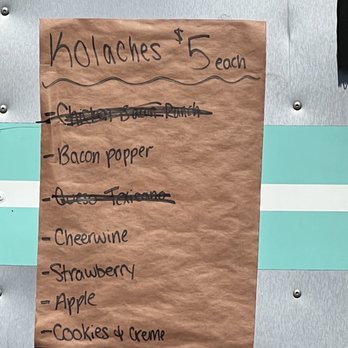 Kolaches $5 each
- Chicken Bacon Ranch
- Bacon popper
- Queso Texicano
- Cheerwine
- Strawberry
- Apple
- Cookies & Creme